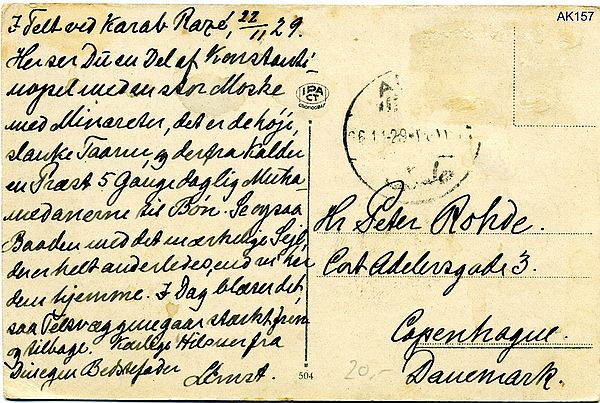 I Telt ved Karab Razé, 22/11 29.
Her ser Du en Del af Konstanti-
nopel med en stor Moske
med Minareter, det er de høje,
slanke Taarne, og derfra kalder
en Præst 5 Gange daglig Muha-
medanerne til Bøn. Se ogsaa
Baaden med det mærkelige Sejl,
der er helt anderledes, end vi har
dem hjemme. I Dag blæser det,
saa Teltvæggene gaar stærkt frem
og tilbage. Kærlig Hilsner fra
Din egen Bedstefader
Ernst.
AK157
IPA
CT
26 11 29
Hr Peter Rohde.
Cort Adelersgade 3.
Copenhague.
Danemark.
504
20,-